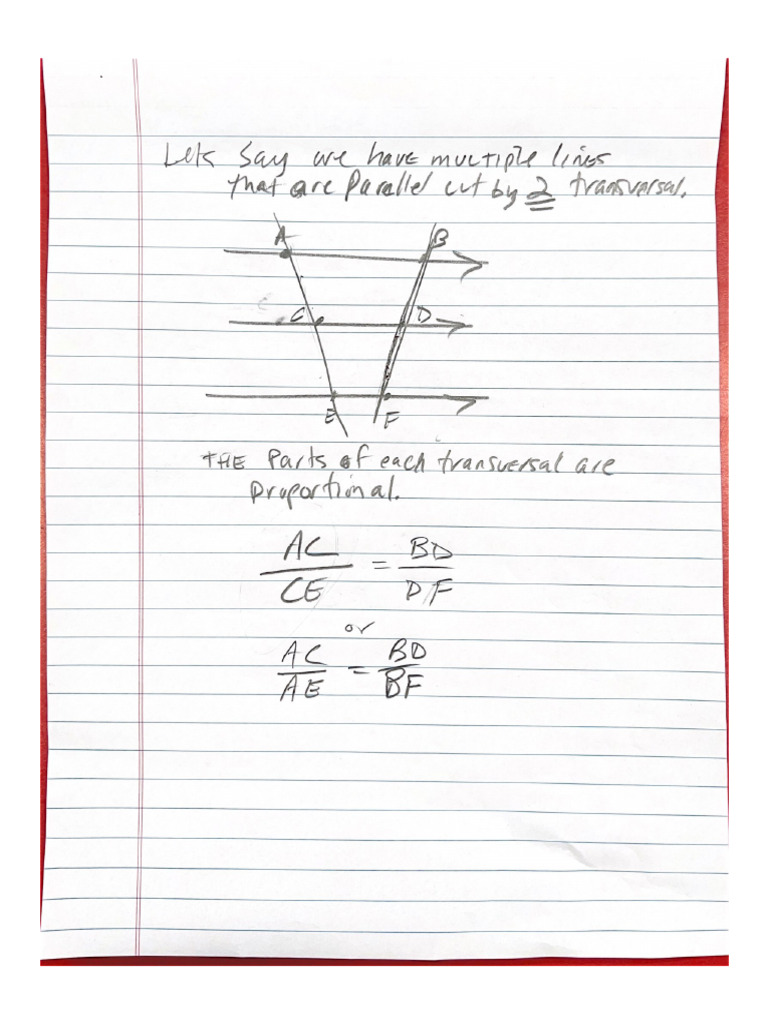 Lets Say we have multiple lines
that are Parallel cut by 2 transversal.
A B
C D
E F
THE Parts of each transversal are
proportional.
AC = BD
CE DF
or
AC = BD
AE BF